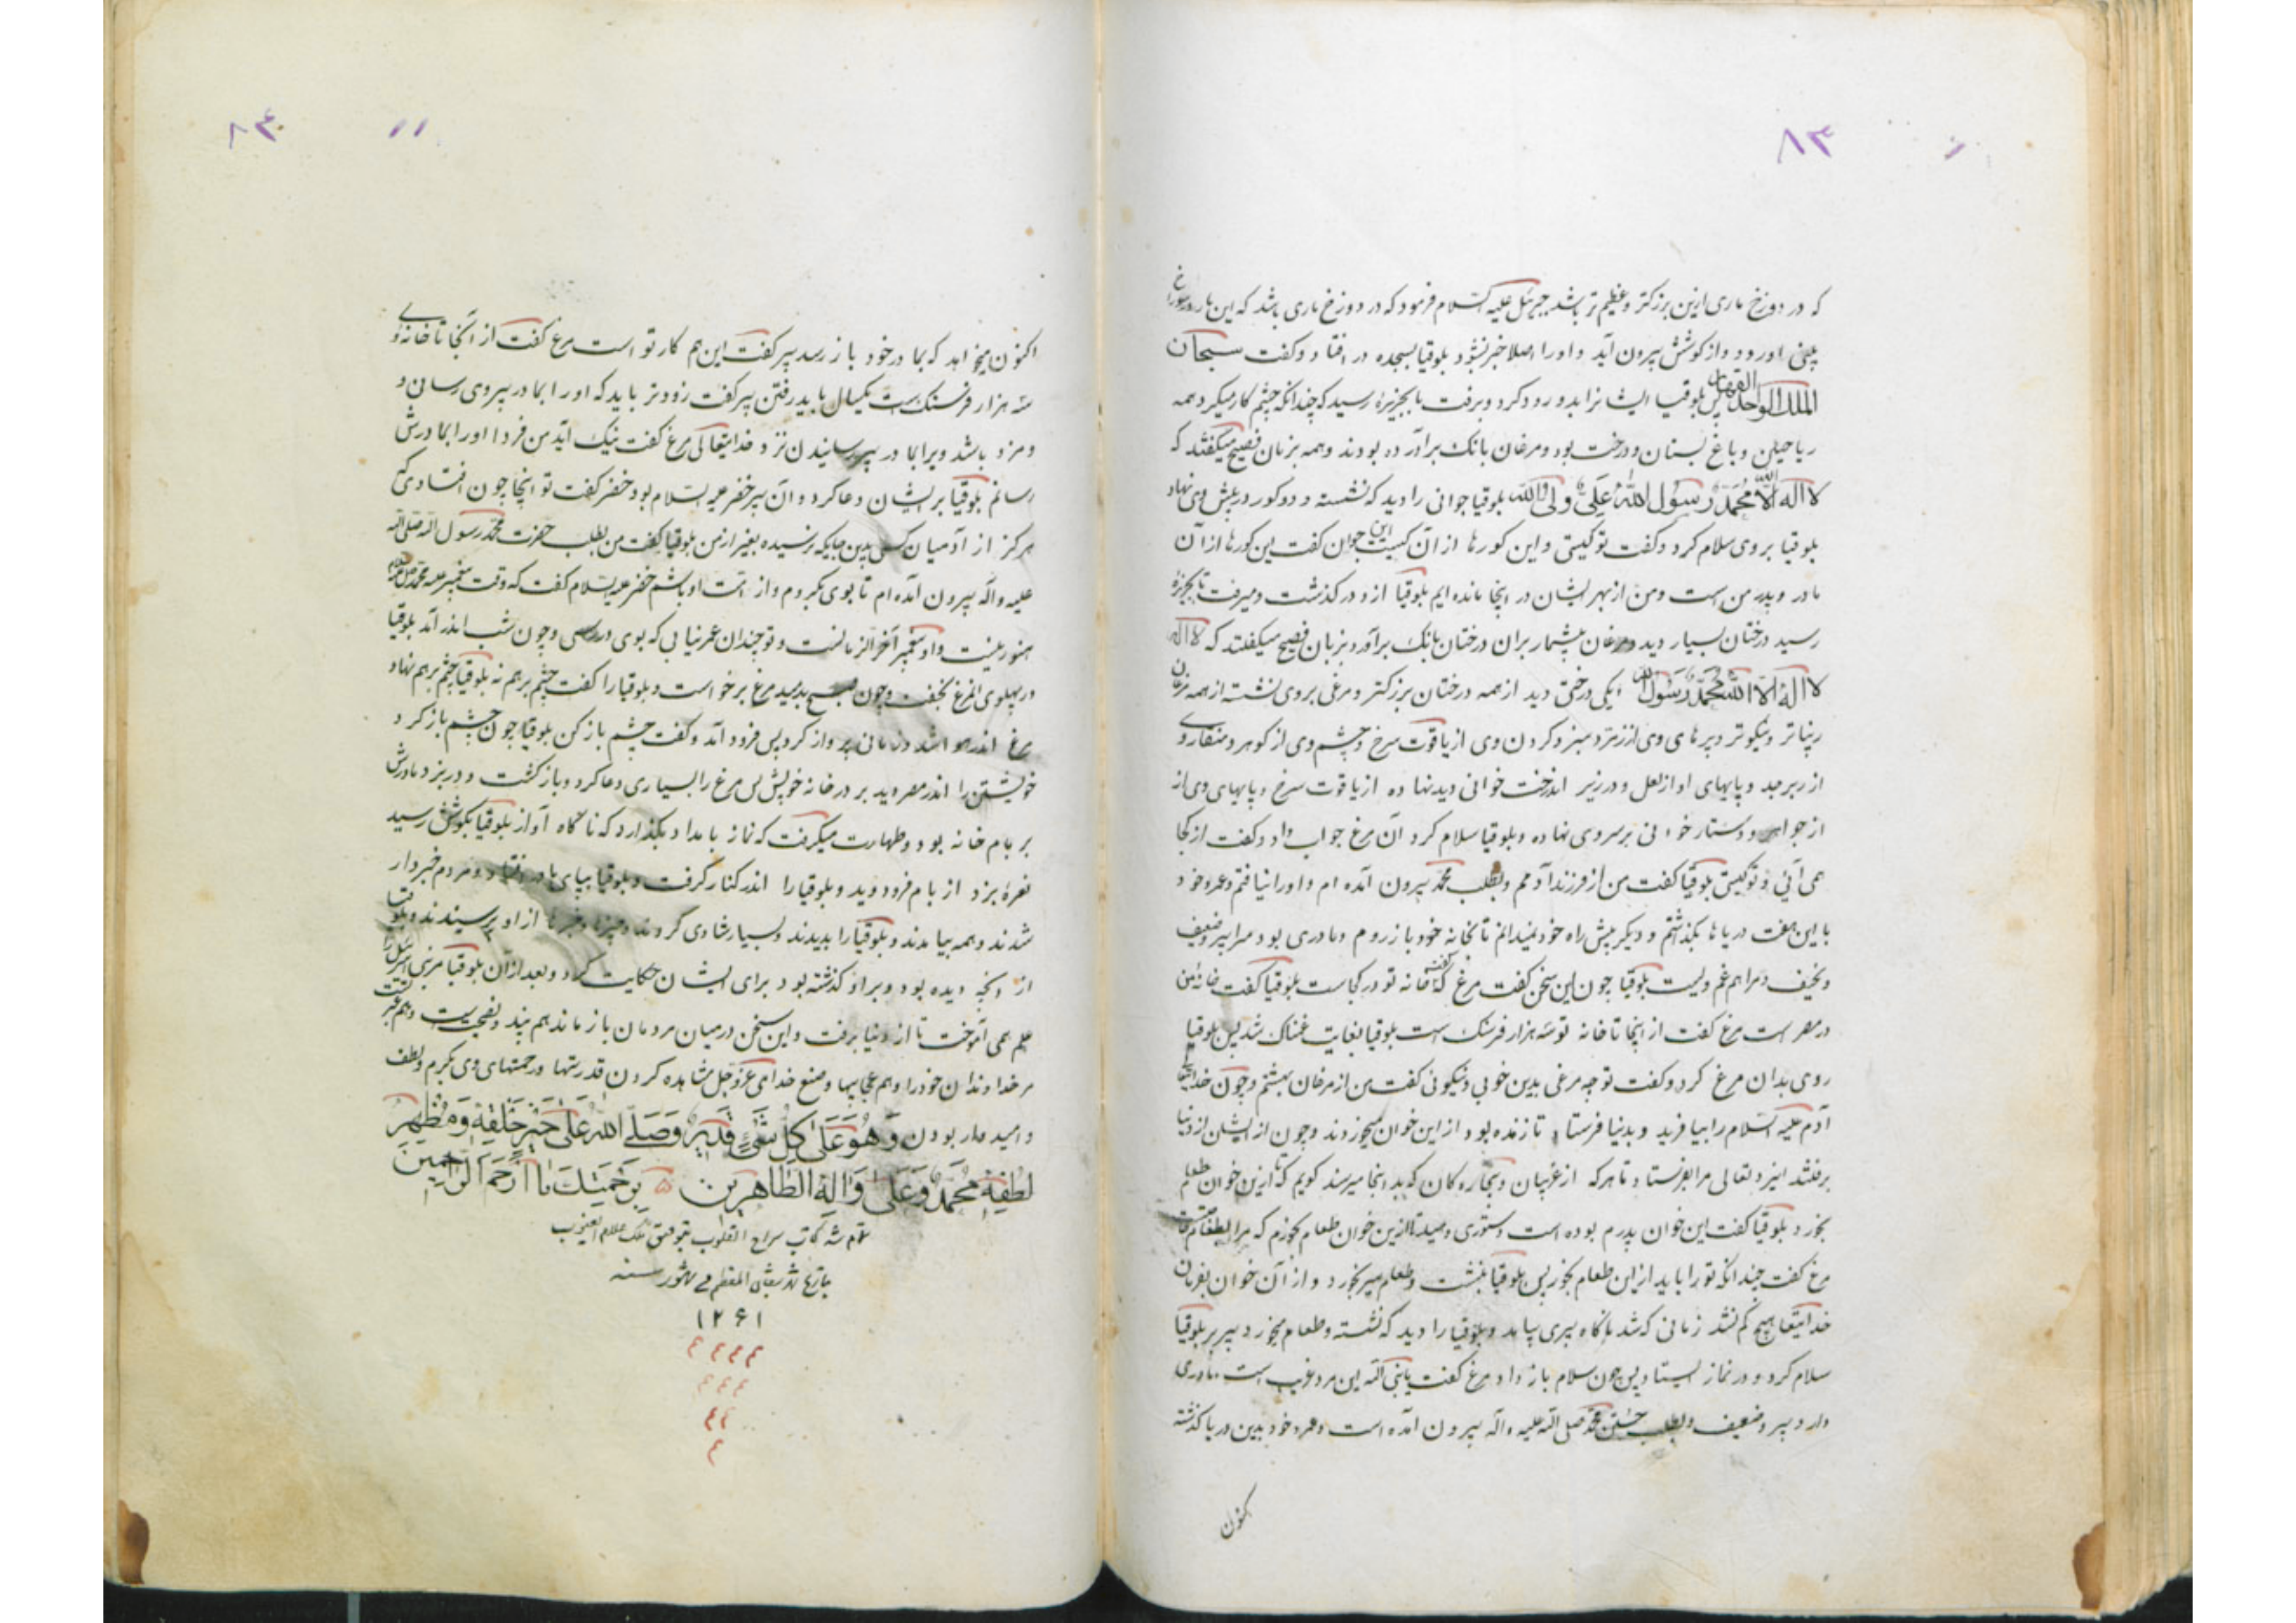 ۸۳
که در دوزخ ماری ازین بزرکتر و عظیم تر باشد جبرئیل علیه السلام فرمود که در دوزخ ماری باشد که این مار در سوراخ
بینی او رود و از کوشش بیرون آید و او را اصلا خبر نشود بلوقیا بسجده در افتاد و کفت سبحان
الملک الواحد القهار پس بلوقیا ایشانرا بدرود کرد و برفت تا بجزیرهٔ رسید که چندانکه چشم کار میکرد همه
ریاحین و باغ بستان و درخت بود و مرغان بانک برآورده بودند و همه بزبان فصیح میکفتند که
لا اله الا الله محمد رسول الله علی ولی الله بلوقیا جوانی را دید که نشسته و دو کور در پیش وی نهاد
بلوقیا بر وی سلام کرد و کفت تو کیستی و این کورها از آن کیست این جوان کفت این کورها از آن
مادر و پدر من است و من از بهر ایشان در اینجا مانده ایم بلوقیا ازو در کذشت و میرفت تا بجزیرهٔ
رسید درختان بسیار دید و مرغان بیشمار بران درختان بانک برآورد و بزبان فصیح میکفتند که لا اله
لا اله الا الله محمد رسول الله یکی درختی دید از همه درختان بزرکتر و مرغی بر وی نشسته از همه مرغان
زیباتر و نیکوتر و پرهای وی از زمرد سبز و کردن وی از یاقوت سرخ و چشم وی از کوهر و منقار وی
از زبرجد و پایهای او از لعل و در زیر آندرخت خوانی دید نهاده از یاقوت سرخ و پایهای وی از
از جواهر و دستار خوانی بر سر وی نهاده و بلوقیا سلام کرد آن مرغ جواب داد و کفت از کجا
می آئی و تو کیستی بلوقیا کفت من از فرزند آدمم و بطلب محمد بیرون آمده ام و او را نیافتم و عمر خود
با این هفت دریاها بکذشتم و دیکر پیش راه خود نمیدانم تا بخانه خود باز روم و مادری بود مرا پیر و ضعیف
و نحیف و مرا هم غم ویست بلوقیا چون این سخن کفت مرغ کفت که خانه تو در کجاست بلوقیا کفت خانهٔ من
در مصر است مرغ کفت از اینجا تا خانه تو سه هزار فرسنک است بلوقیا بغایت غمناک شد پس بلوقیا
روی بدان مرغ کرد و کفت تو چه مرغی بدین خوبی و نیکوئی کفت من از مرغان بهشتم و چون خدایتعالی
آدم علیه السلام را بیافرید و بدنیا فرستاد تا زنده بود از این خوان میخوردند و چون از ایشان از دنیا
برفتند ایزد تعالی مرا بفرستاد تا هر که از غریبان و بیچاره کان که بدینجا میرسند کویم که تا ازین خوان طعام
بخورد بلوقیا کفت این خوان پدرم بوده است دستوری میدهید تا ازین خوان طعام بخورم که مرا
مرغ کفت چندانکه تو را باید از این طعام بخور پس بلوقیا بنشست و طعام سیر بخورد و از آن خوان بفرمان
خدایتعالی هیچ کم نشد زمانی که شد ناکاه پیری بیامد و بلوقیا را دید که نشسته و طعام میخورد پیر بر بلوقیا
سلام کرد و در نماز ایستاد پس چون سلام باز داد مرغ کفت یا نبی الله این مرد غریب است مادری
دارد پیر و ضعیف و بطلب جستن محمد صلی الله علیه و آله بیرون آمده است و عمر خود بدین دریا کذشته
کنون
۸۴
اکنون میخواهد که بمادر خود باز رسد پیر کفت این هم کار تو است مرغ کفت از آنجا تا خانهٔ وی
سه هزار فرسنک است یکسال باید رفتن پیر کفت زودتر باید که او را بمادر پیر وی رسانی و
و مزد باشد ویرا بمادر پیر رسانیدن نزد خدایتعالی مرغ کفت نیک آید من فردا او را بمادرش
رسانم بلوقیا بر ایشان دعا کرد و آن پیر خضر علیه السلام بود خضر کفت تو اینجا چون افتادی که
هرکز از آدمیان کسی بدین جایکه نرسیده بغیر از من بلوقیا کفت من بطلب حضرت محمد رسول الله صلی الله
علیه و آله بیرون آمده ام تا بوی بکروم و از امت او باشم خضر علیه السلام کفت که وقت پیغمبر
هنوز نیست و او پیغمبر آخر الزمانست و تو چندان عمر نیابی که بوی در رسی و چون شب اندر آمد بلوقیا
در پهلوی مرغ بخفت و چون صبح بدمید مرغ برخواست و بلوقیا را کفت چشم بر هم نه بلوقیا چشم بر هم نهاد
مرغ اندر هوا شد و زمانی پرواز کرد پس فرود آمد و کفت چشم باز کن بلوقیا چون چشم باز کرد
خویشتن را اندر مصر دید بر در خانه خویش پس مرغ را بسیاری دعا کرد و باز کشت و در بزد مادرش
بر بام خانه بود و طهارت میکرفت که نماز بامداد بکذارد که ناکاه آواز بلوقیا بکوشش رسید
نعرهٔ بزد از بام فرود دوید و بلوقیا را اندر کنار کرفت و بلوقیا بپای مادر افتاد و مردم خبردار
شدند و همه بیامدند و بلوقیا را بدیدند و بسیار شادی کردند و خبرها از او پرسیدند و بلوقیا
از آنچه دیده بود و بر او کذشته بود برای ایشان حکایت کرد و بعد از آن بلوقیا مر بنی اسرائیل را
علم همی آموخت تا از دنیا برفت و این سخن در میان مردمان باز ماند هم پند و نصیحت است و هم عبرت
مر خداوندان خود را و هم عجایبها و صنع خدای عز و جل مشاهده کردن قدرتها و رحمتهای وی بکرم و لطف
و امیدوار بودن وَهُوَ عَلیٰ کلِّ شَیْءٍ قَدیرٌ وَصَلَّی اللهُ عَلیٰ خَیْرِ خَلْقِهِ وَمَظْهَرِ
لُطْفِهِ مُحَمَّدٍ وَعَلی وَآلِهِ الطاهرین بِرَحْمَتِکَ یا اَرْحَمَ الرّاحِمینَ
تمام شد کتاب سراج القلوب بتوفیق ملک علام الغیوب
بتاریخ شهر المعظم فی شهور سنه
۱۲۶۱